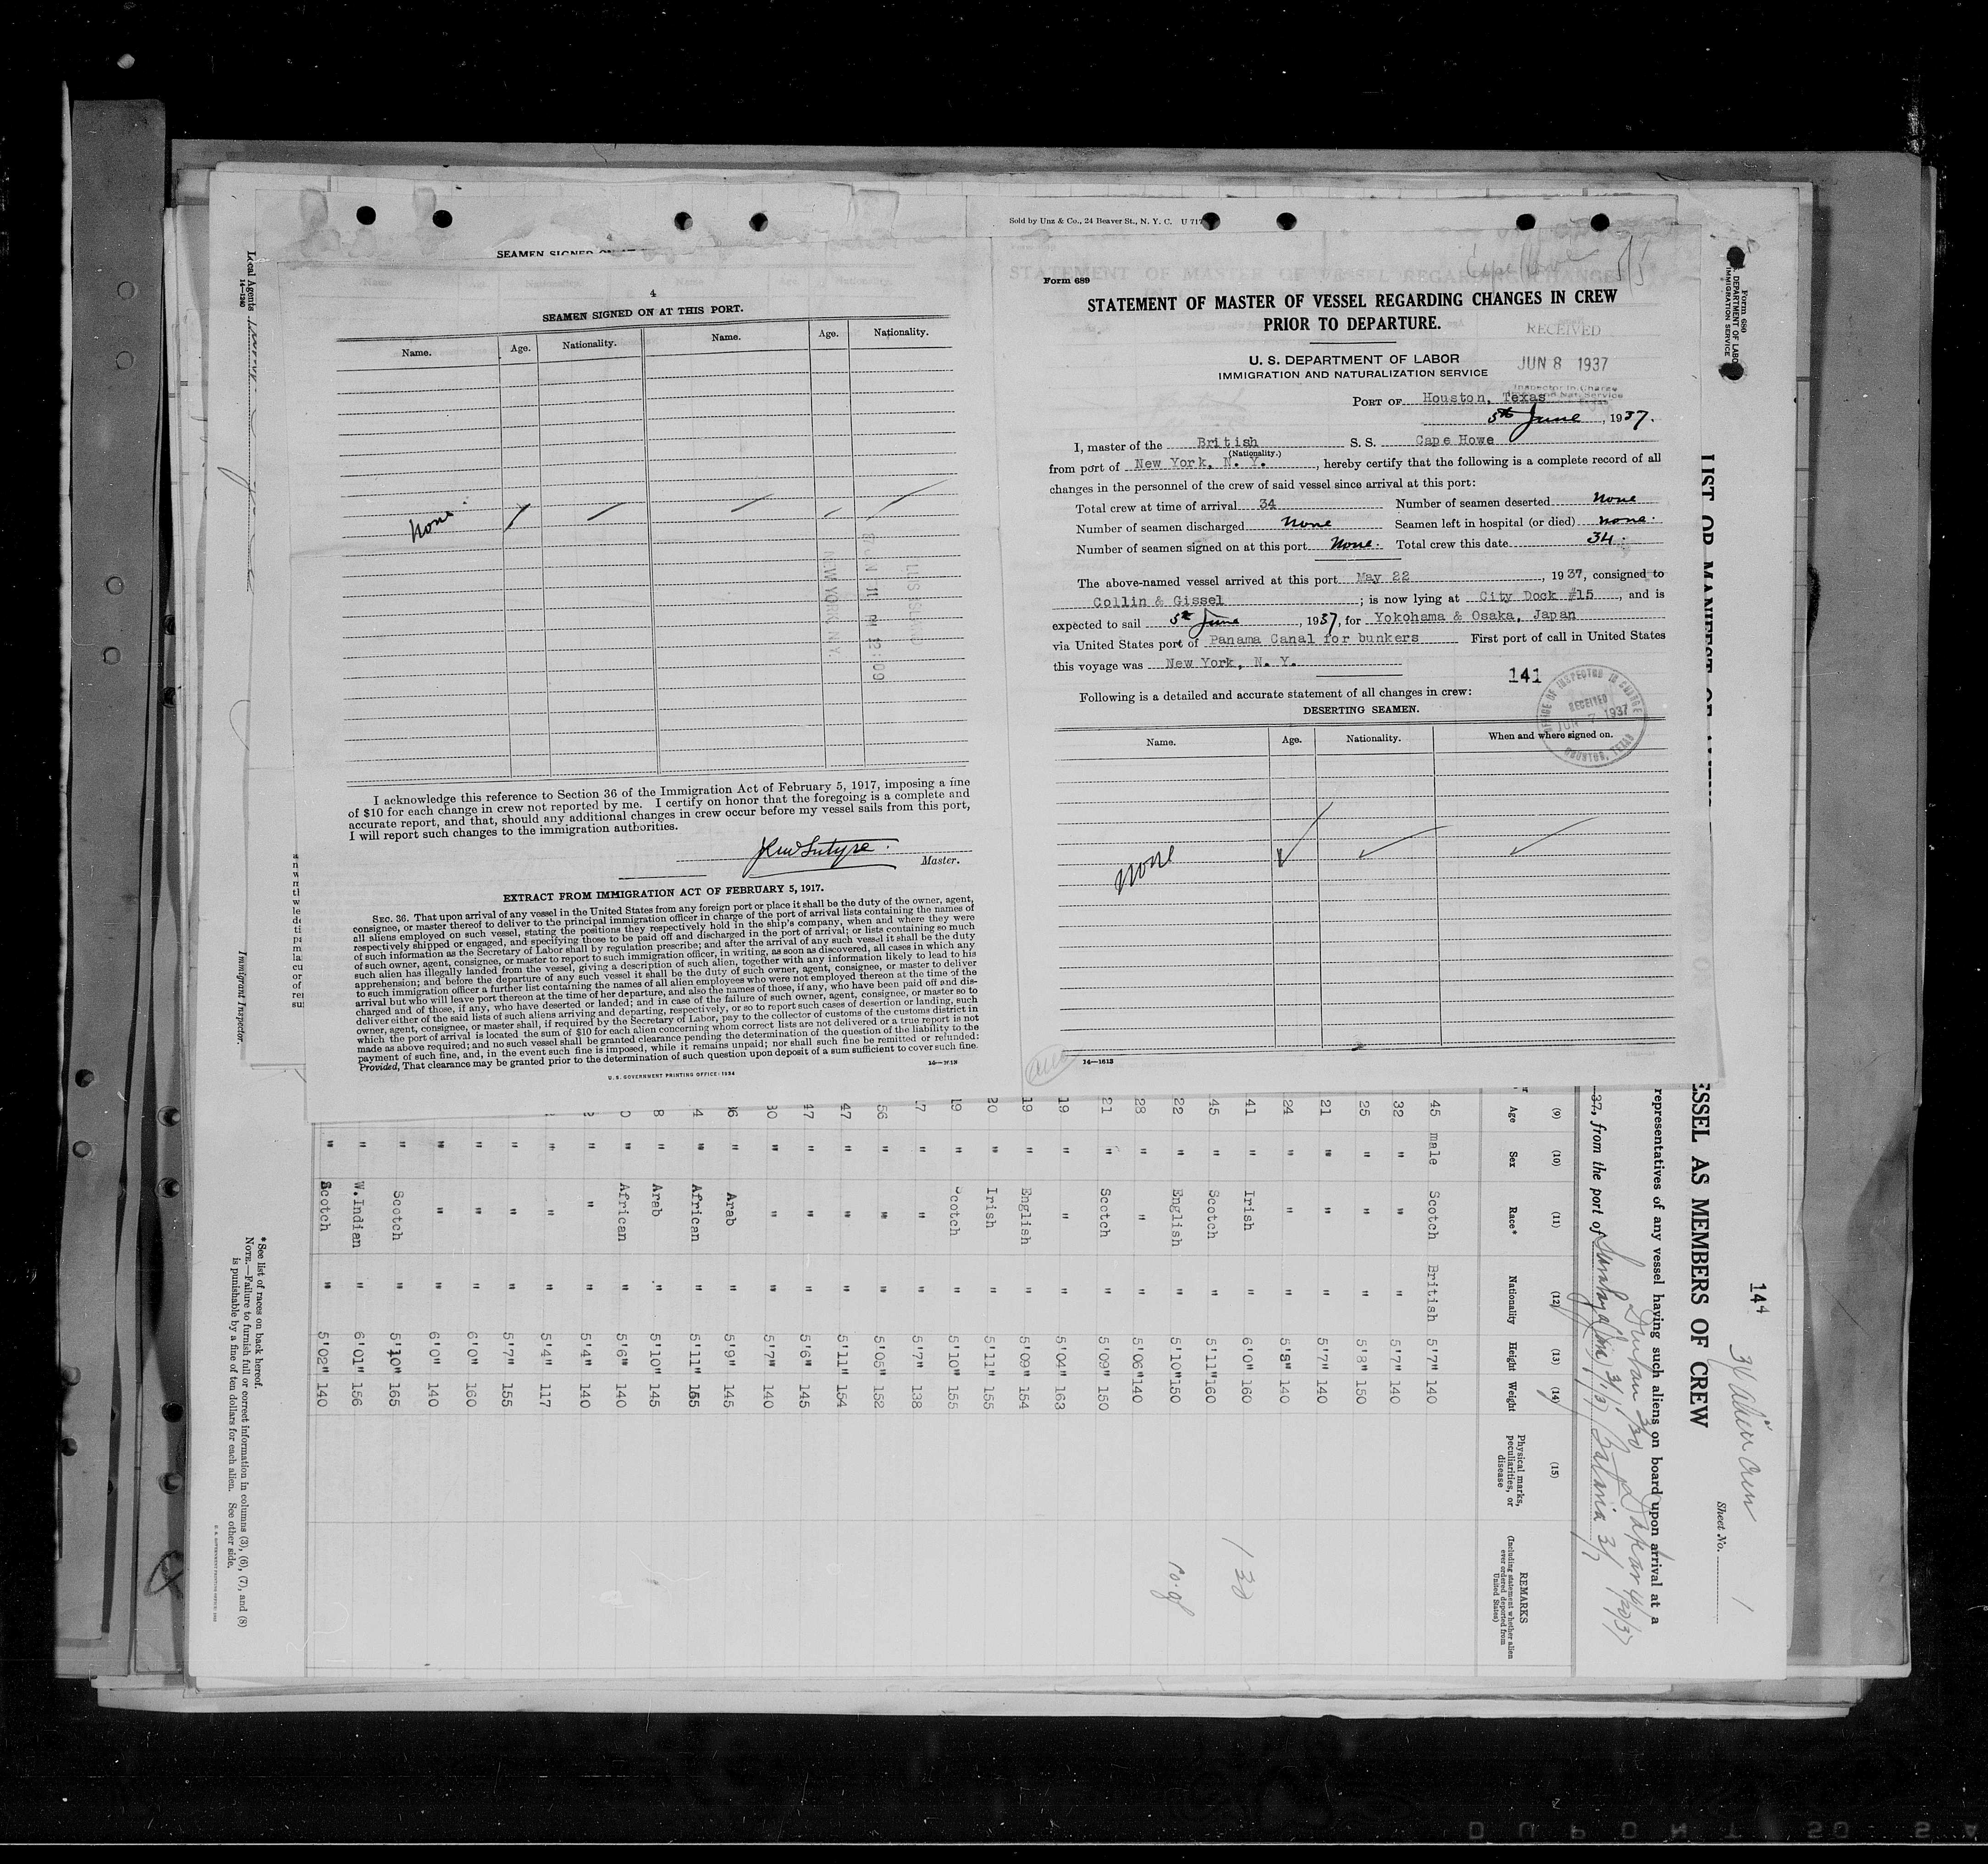 Sold by Unz & Co., 24 Beaver St., N. Y. C. U 717
SEAMEN SIGNED ON AT
4
SEAMEN SIGNED ON AT THIS PORT.
Name. Age. Nationality. Name. Age. Nationality.
None
I acknowledge this reference to Section 36 of the Immigration Act of February 5, 1917, imposing a fine
of $10 for each change in crew not reported by me. I certify on honor that the foregoing is a complete and
accurate report, and that, should any additional changes in crew occur before my vessel sails from this port,
I will report such changes to the immigration authorities.
Master.
EXTRACT FROM IMMIGRATION ACT OF FEBRUARY 5, 1917.
SEC. 36. That upon arrival of any vessel in the United States from any foreign port or place it shall be the duty of the owner, agent,
consignee, or master thereof to deliver to the principal immigration officer in charge of the port of arrival lists containing the names of
all aliens employed on such vessel, stating the positions they respectively hold in the ship's company, when and where they were
respectively shipped or engaged, and specifying those to be paid off and discharged in the port of arrival; or lists containing so much
of such information as the Secretary of Labor shall by regulation prescribe; and after the arrival of any such vessel it shall be the duty
of such owner, agent, consignee, or master to report to such immigration officer, in writing, as soon as discovered, all cases in which any
such alien has illegally landed from the vessel, giving a description of such alien, together with any information likely to lead to his
apprehension; and before the departure of any such vessel it shall be the duty of such owner, agent, consignee, or master to deliver
to such immigration officer a further list containing the names of all alien employees who were not employed thereon at the time of the
arrival but who will leave port thereon at the time of her departure, and also the names of those, if any, who have been paid off and dis-
charged and of those, if any, who have deserted or landed; and in case of the failure of such owner, agent, consignee, or master so to
deliver either of the said lists of such aliens arriving and departing, respectively, or so to report such cases of desertion or landing, such
owner, agent, consignee, or master shall, if required by the Secretary of Labor, pay to the collector of customs of the customs district in
which the port of arrival is located the sum of $10 for each alien concerning whom correct lists are not delivered or a true report is not
made as above required; and no such vessel shall be granted clearance pending the determination of the question of the liability to the
payment of such fine, and, in the event such fine is imposed, while it remains unpaid; nor shall such fine be remitted or refunded:
Provided, That clearance may be granted prior to the determination of such question upon deposit of a sum sufficient to cover such fine.
U. S. GOVERNMENT PRINTING OFFICE: 1934
Form 689
Cape Howe
STATEMENT OF MASTER OF VESSEL REGARDING CHANGES IN CREW
PRIOR TO DEPARTURE.
RECEIVED
U. S. DEPARTMENT OF LABOR
IMMIGRATION AND NATURALIZATION SERVICE
JUN 8 1937
Inspector in Charge
PORT OF Houston, Texas
5th June, 1937.
I, master of the British S. S. Cape Howe
(Nationality.)
from port of New York, N. Y., hereby certify that the following is a complete record of all
changes in the personnel of the crew of said vessel since arrival at this port:
Total crew at time of arrival 34 Number of seamen deserted None
Number of seamen discharged None Seamen left in hospital (or died) None.
Number of seamen signed on at this port None. Total crew this date 34.
The above-named vessel arrived at this port May 22, 1937, consigned to
Collin & Gissel; is now lying at City Dock #15, and is
expected to sail 5th June, 1937, for Yokohama & Osaka, Japan
via United States port of Panama Canal for bunkers First port of call in United States
this voyage was New York, N. Y.
141
OFFICE OF INSPECTOR IN CHARGE
RECEIVED
JUN 7 1937
HOUSTON, TEXAS
Following is a detailed and accurate statement of all changes in crew:
DESERTING SEAMEN.
Name. Age. Nationality. When and where signed on.
None
14—1613
Local Agents
14—1240
Immigrant Inspector.
Form 680
U. S. DEPARTMENT OF LABOR
IMMIGRATION SERVICE
144
34 Alien Crew
Sheet No. 1
LIST OR MANIFEST OF
ESSEL AS MEMBERS OF CREW
representatives of any vessel having such aliens on board upon arrival at a
37, from the port of
(9) (10) (11) (12) (13) (14) (15)
Age Sex Race* Nationality Height Weight Physical marks, peculiarities, or disease REMARKS
(Including statement whether alien ever ordered deported from United States)
45 male Scotch British 5'7" 140
32 " " " 5'7" 140
25 " " " 5'8" 150
21 " " " 5'7" 140
24 " " " 5'8" 140
41 " Irish " 6'0" 160
45 " Scotch " 5'11" 160
22 " English " 5'10" 150
28 " " " 5'06" 140
21 " Scotch " 5'09" 150
19 " " " 5'04" 163
19 " English " 5'09" 154
20 " Irish " 5'11" 155
19 " Scotch " 5'10" 155
7 " " " 5'7" 138
56 " " " 5'05" 152
47 " " " 5'11" 154
47 " " " 5'6" 145
30 " " " 5'7" 140
36 " Arab " 5'9" 145
4 " African " 5'11" 155
8 " Arab " 5'10" 145
0 " African " 5'6" 140
" " " 5'4" 140
" " " 5'4" 117
" " " 5'7" 155
" " " 6'0" 160
" " " 6'0" 140
" Scotch " 5'10" 165
" W.Indian " 6'01" 156
" Scotch " 5'02" 140
*See list of races on back hereof.
NOTE.—Failure to furnish full or correct information in columns (3), (6), (7), and (8)
is punishable by a fine of ten dollars for each alien. See other side.